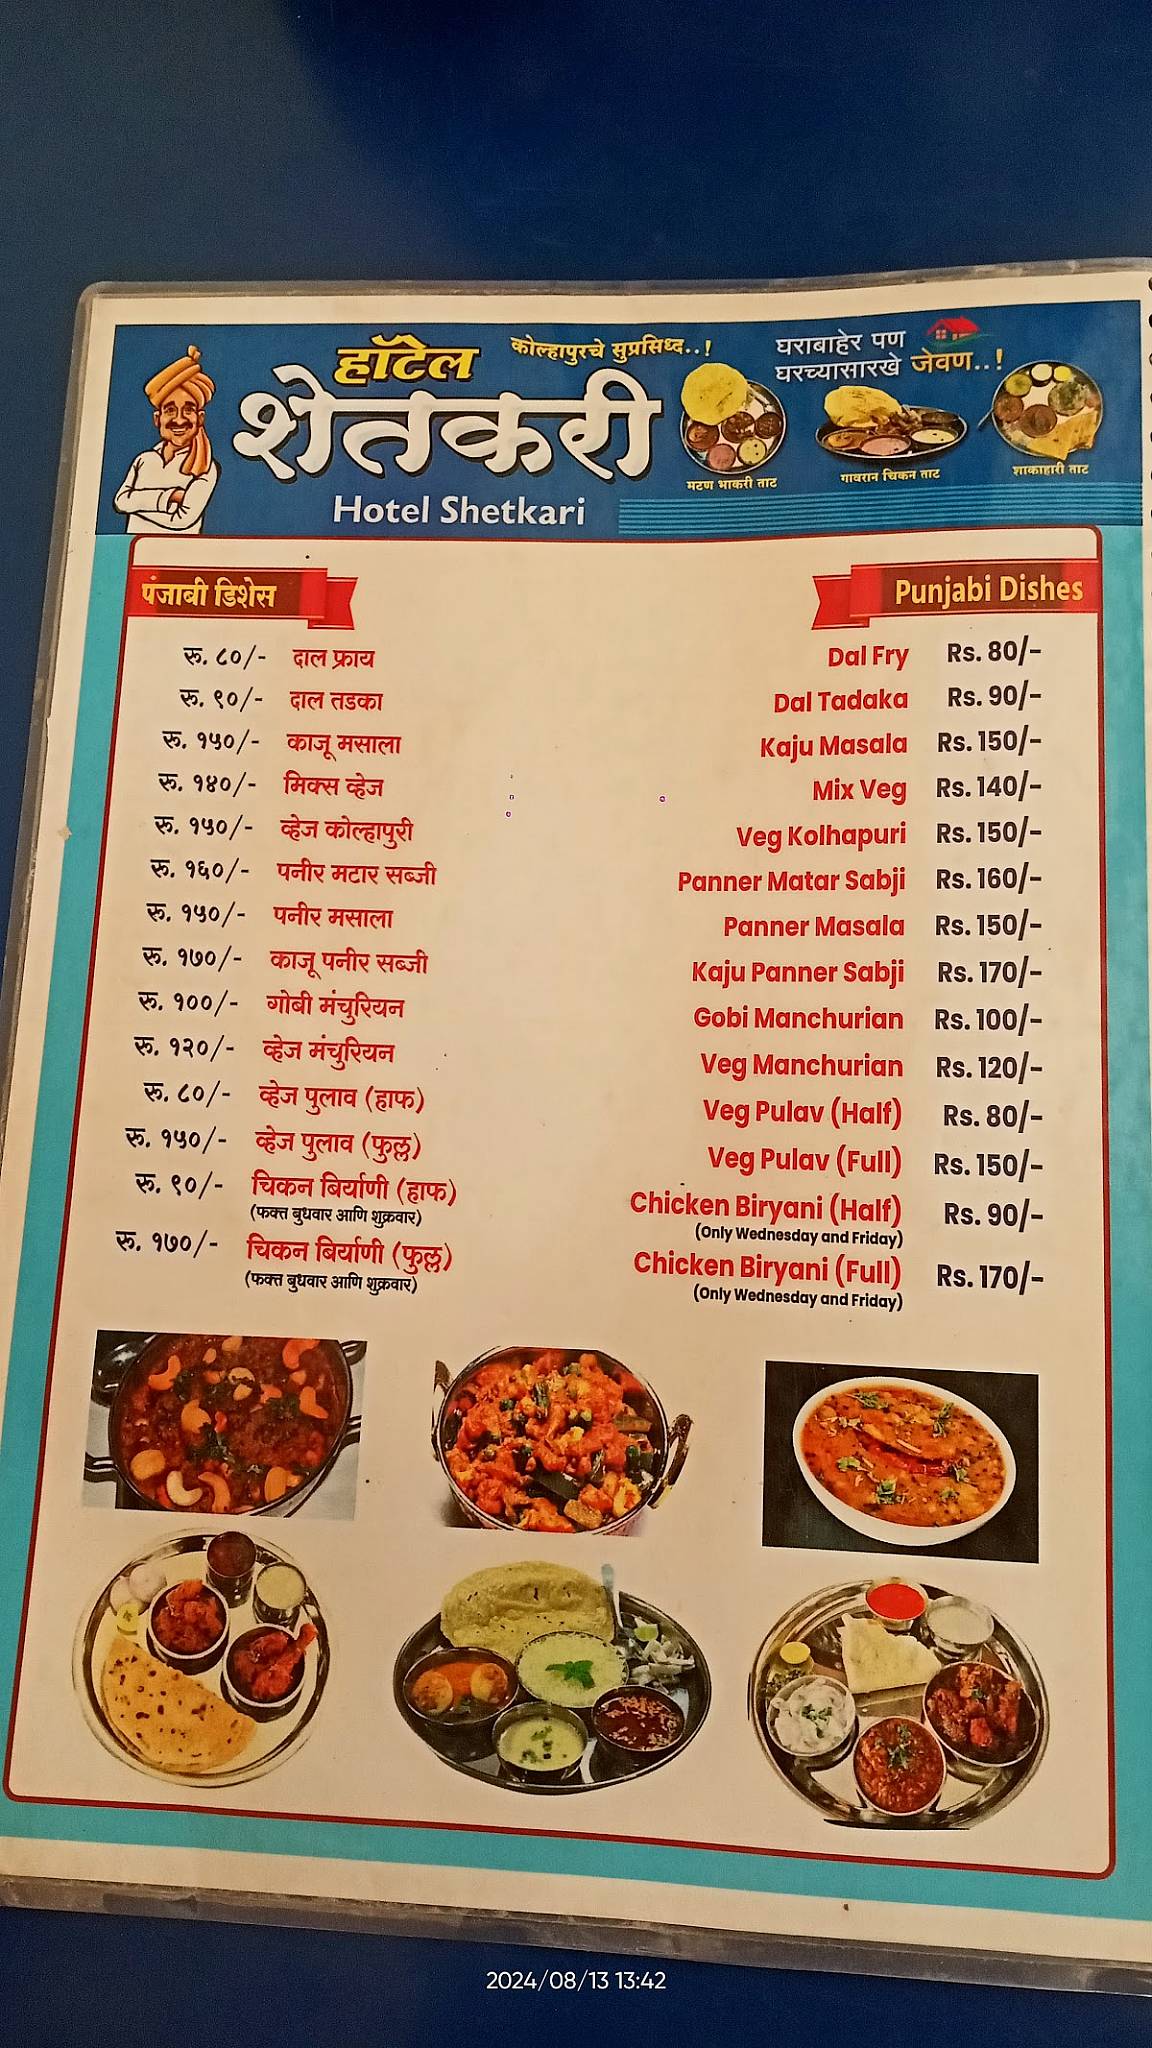 हॉटेल
कोल्हापुरचे सुप्रसिध्द..!
शेतकरी
Hotel Shetkari
घराबाहेर पण
घरच्यासारखे जेवण..!
मटण भाकरी ताट
गावरान चिकन ताट
शाकाहारी ताट
पंजाबी डिशेस
Punjabi Dishes
रू. ८०/- दाल फ्राय Dal Fry Rs. 80/-
रू. ९०/- दाल तडका Dal Tadaka Rs. 90/-
रू. १५०/- काजू मसाला Kaju Masala Rs. 150/-
रू. १४०/- मिक्स व्हेज Mix Veg Rs. 140/-
रू. १५०/- व्हेज कोल्हापुरी Veg Kolhapuri Rs. 150/-
रू. १६०/- पनीर मटार सब्जी Panner Matar Sabji Rs. 160/-
रू. १५०/- पनीर मसाला Panner Masala Rs. 150/-
रू. १७०/- काजू पनीर सब्जी Kaju Panner Sabji Rs. 170/-
रू. १००/- गोबी मंचुरियन Gobi Manchurian Rs. 100/-
रू. १२०/- व्हेज मंचुरियन Veg Manchurian Rs. 120/-
रू. ८०/- व्हेज पुलाव (हाफ) Veg Pulav (Half) Rs. 80/-
रू. १५०/- व्हेज पुलाव (फुल्ल) Veg Pulav (Full) Rs. 150/-
रू. ९०/- चिकन बिर्याणी (हाफ) Chicken Biryani (Half) Rs. 90/-
(फक्त बुधवार आणि शुक्रवार) (Only Wednesday and Friday)
रू. १७०/- चिकन बिर्याणी (फुल्ल) Chicken Biryani (Full) Rs. 170/-
(फक्त बुधवार आणि शुक्रवार) (Only Wednesday and Friday)
2024/08/13 13:42